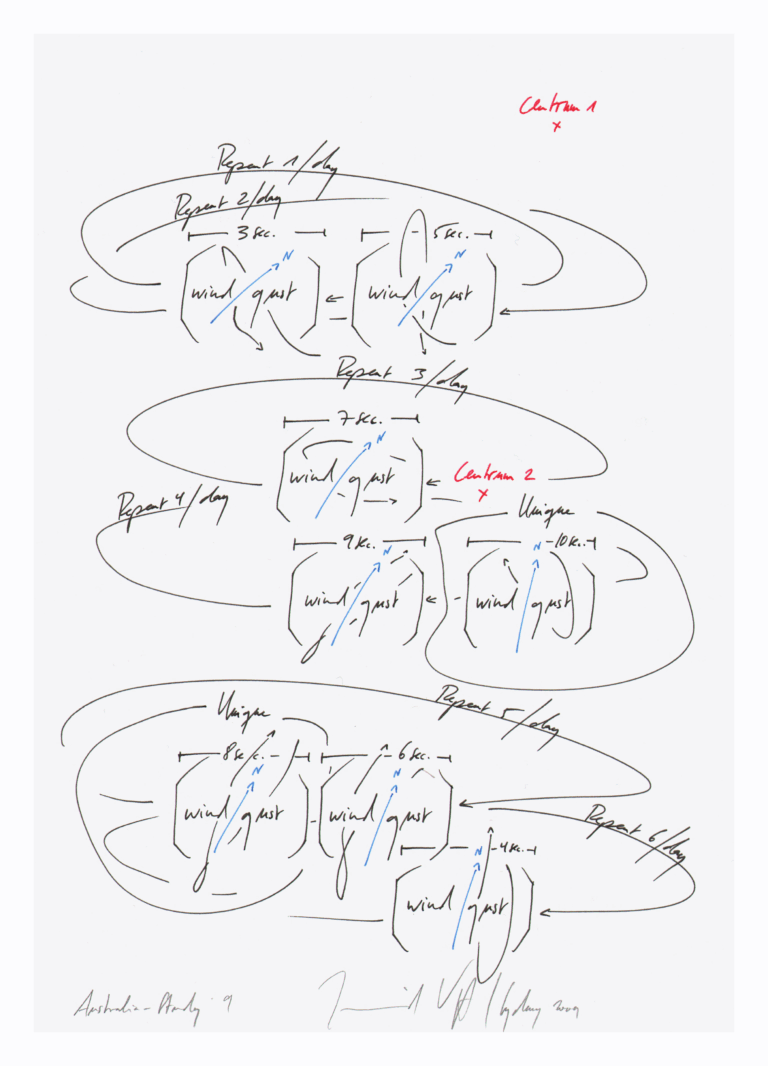 Centrum 1
x
Repeat 1/day
Repeat 2/day
3 sec. 5 sec.
N N
wind gust wind gust
Repeat 3/day
7 sec.
N
wind gust
Centrum 2
x
Repeat 4/day
Unique
9 sec. 10 sec.
N N
wind gust wind gust
Repeat 5/day
Unique
8 sec. 6 sec.
N N
wind gust wind gust
Repeat 6/day
4 sec.
N
wind gust
Australia - 9 Sydney 2009